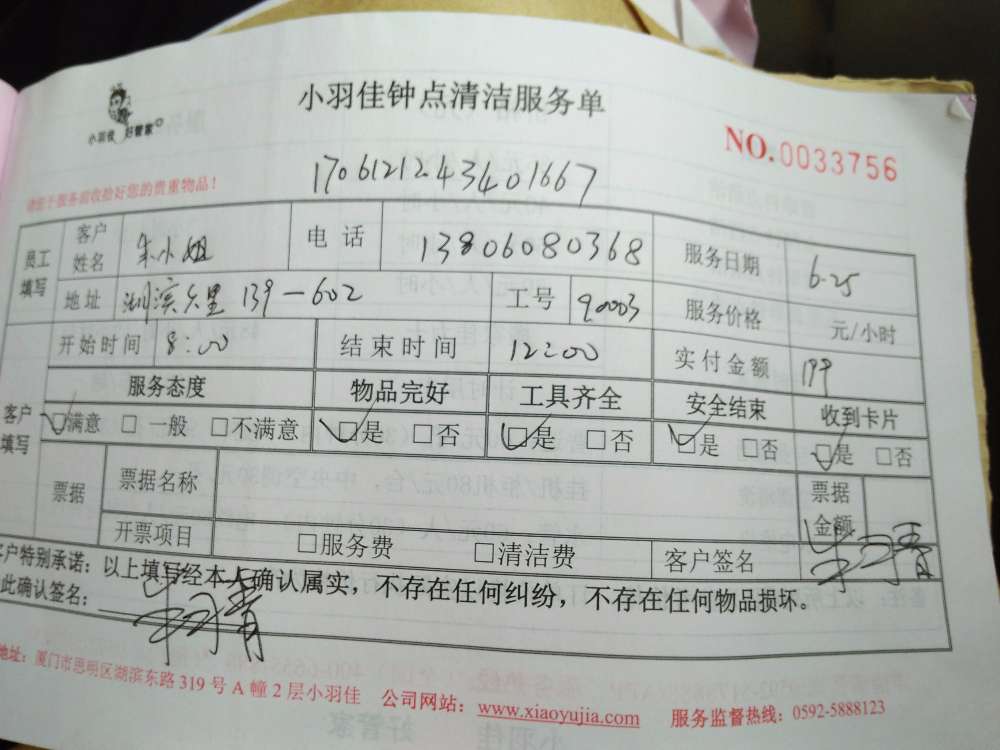 小羽佳钟点清洁服务单
小羽佳 好管家
NO.0033756
请您于服务前收拾好您的贵重物品！
170612124340166７
员工填写 客户姓名 朱小姐 电话 13806080368 服务日期 6.25
地址 湖滨六里 139-602 工号 90003 服务价格 元/小时
开始时间 8:00 结束时间 12:00 实付金额 179
服务态度 物品完好 工具齐全 安全结束 收到卡片
客户填写 ☑满意 □一般 □不满意 ☑是 □否 ☑是 □否 ☑是 □否 ☑是 □否
票据 票据名称 票据金额
开票项目 □服务费 □清洁费 客户签名
客户特别承诺：以上填写经本人确认属实，不存在任何纠纷，不存在任何物品损坏。
此确认签名：
地址：厦门市思明区湖滨东路319号A幢2层小羽佳 公司网站：www.xiaoyujia.com 服务监督热线：0592-5888123